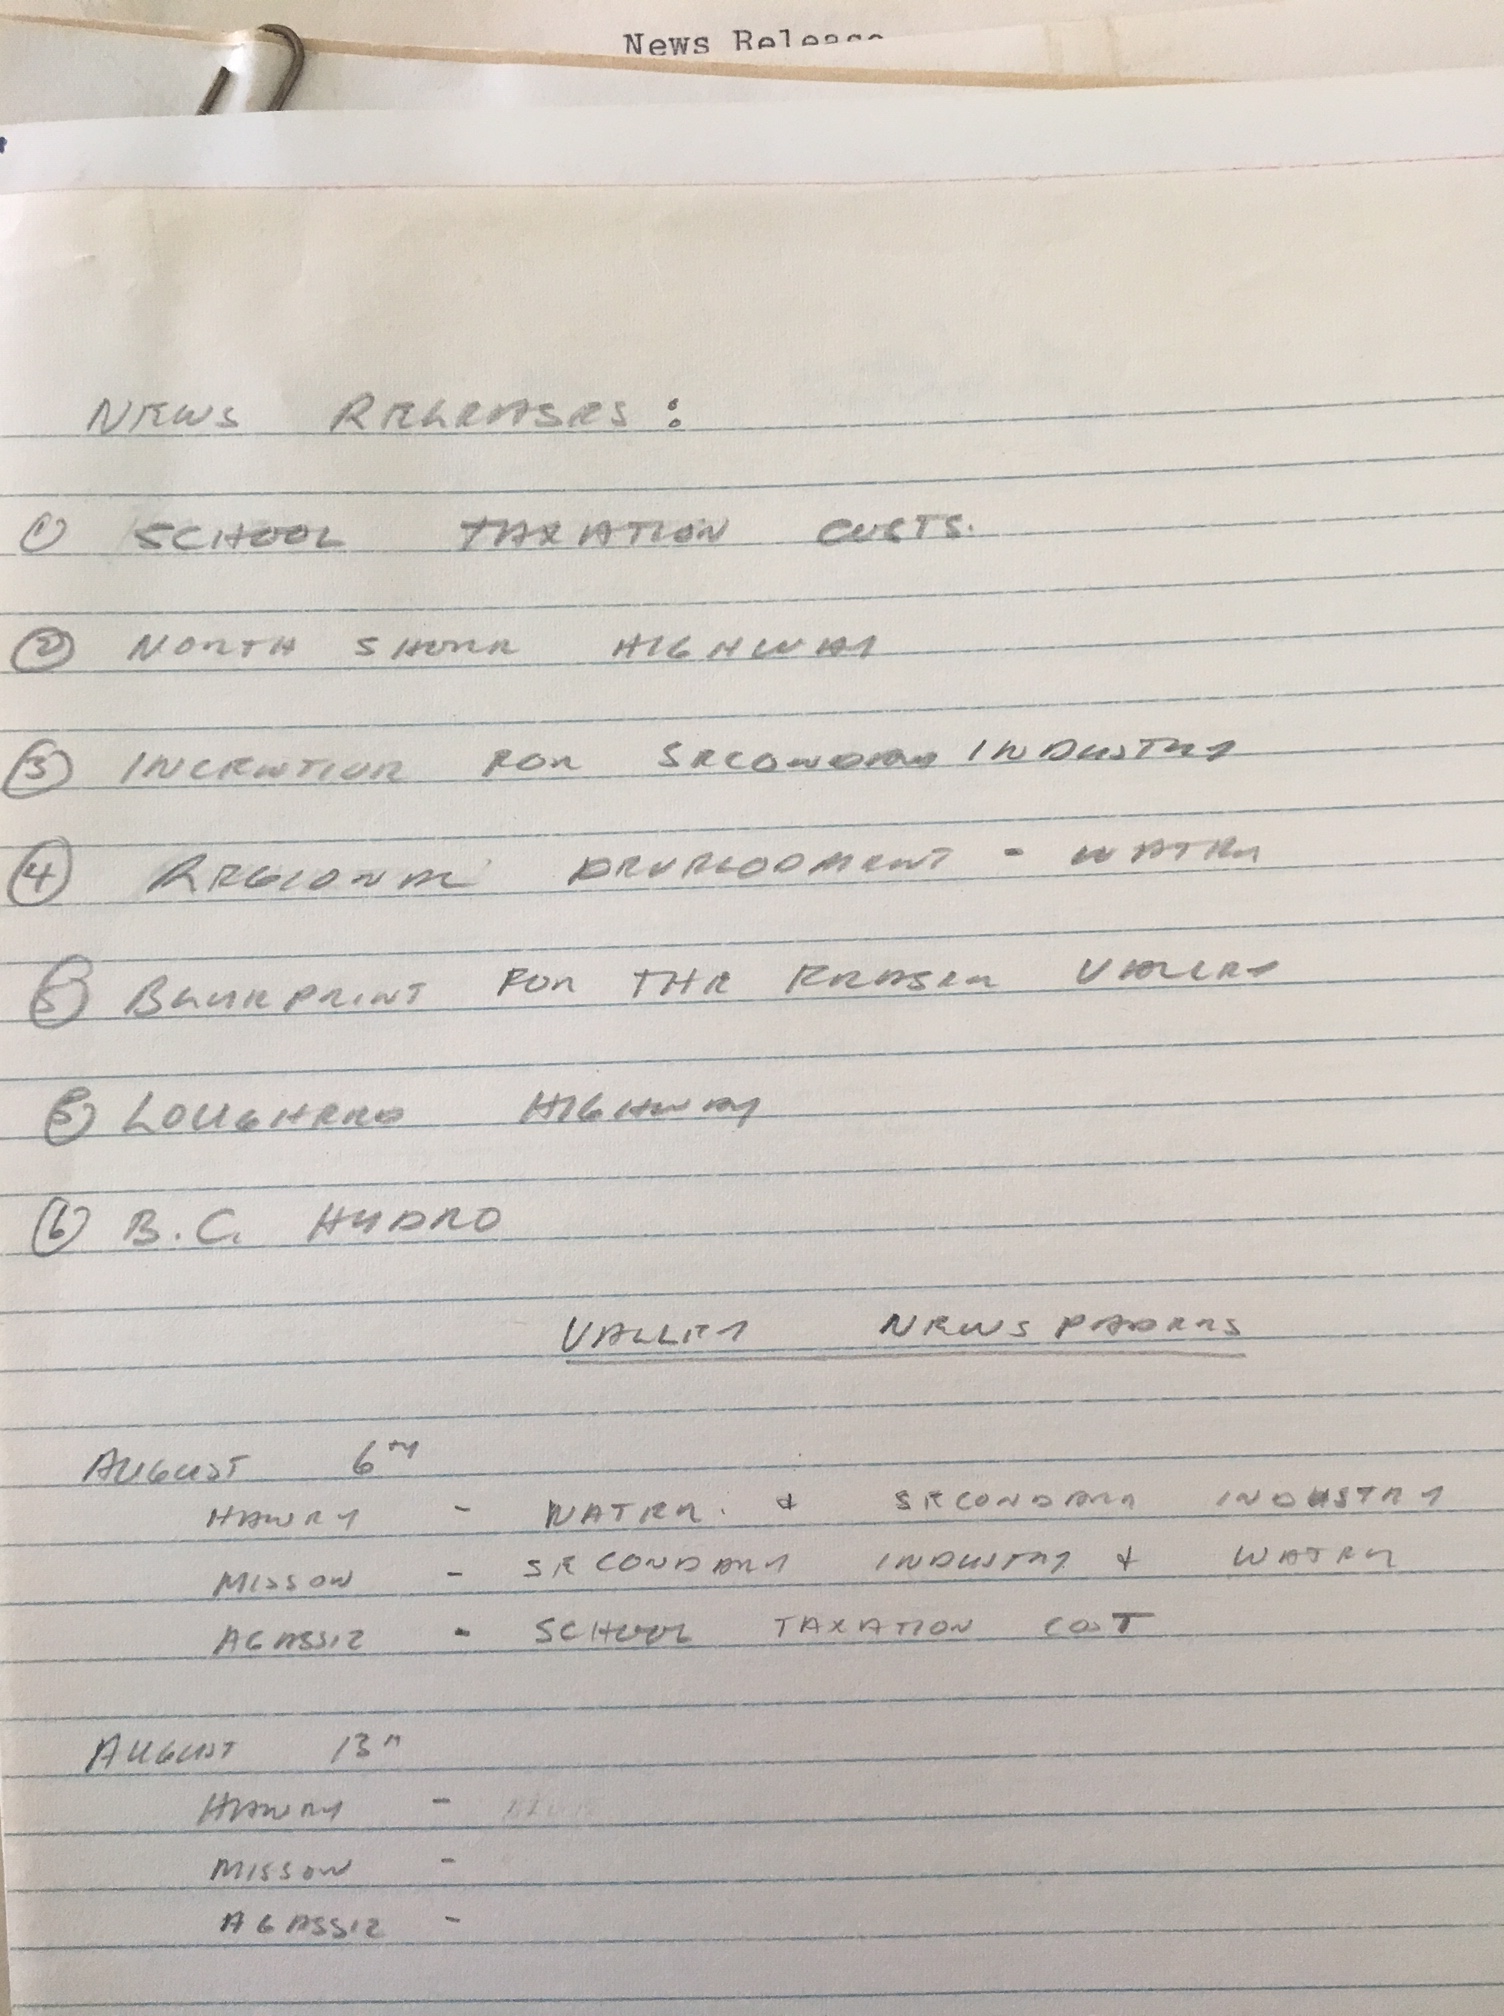 News Release
NEWS RELEASES:
① SCHOOL TAXATION COSTS.
② NORTH SHORE HIGHWAY
③ INCENTIVE FOR SECONDARY INDUSTRY
④ REGIONAL DEVELOPMENT - WATER
⑤ BLUEPRINT FOR THE FRASER VALLEY
⑤ LOUGHEED HIGHWAY
⑥ B.C. HYDRO
VALLEY NEWSPAPERS
AUGUST 6TH
HANEY - WATER. & SECONDARY INDUSTRY
MISSON - SECONDARY INDUSTRY & WATER
AGASSIZ - SCHOOL TAXATION COST
AUGUST 13"
HANEY -
MISSON -
AGASSIZ -